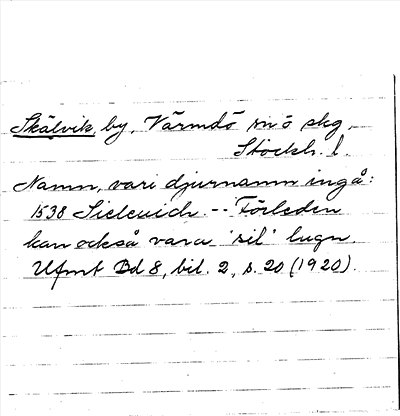 Skälvik, by, Värmdö sn o skg,
Stockh. l.
Namn, vari djurnamn ingå:
1538 Sieleuich. -- Förleden
kan också vara 'sil' lugn.
Ufmt Bd 8, bil. 2, s. 20 (1920).